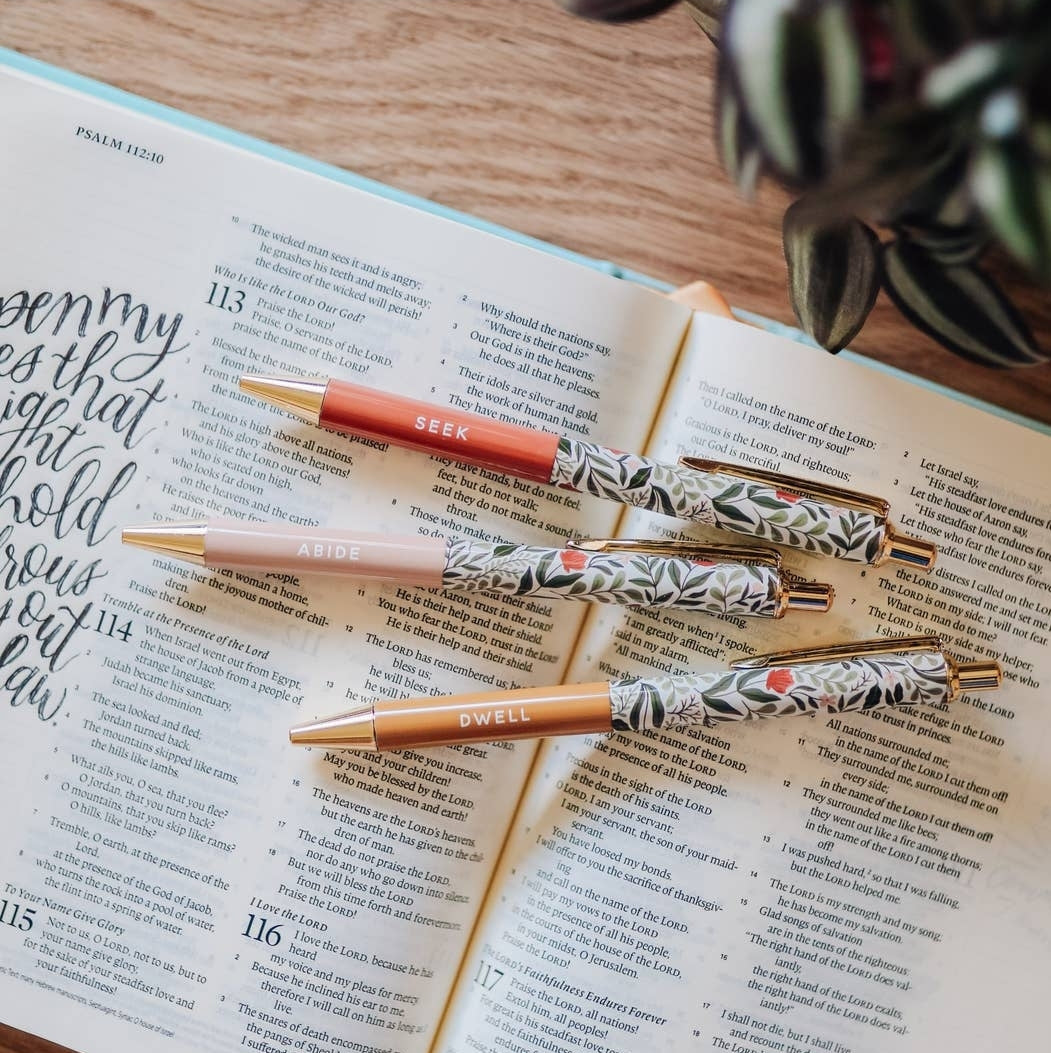 PSALM 112:10
pen my
es that
igh
ght
hold
drous
out
law
10 The wicked man sees it and is angry;
he gnashes his teeth and melts away;
the desire of the wicked will perish!
Who Is like the LORD Our God?
113 Praise the LORD!
Praise, O servants of the LORD,
praise the name of the LORD!
2 Blessed be the name of
from this
the name of the LORD
to be praised!
The LORD is high above all nations,
and his glory above the heavens!
Who is like the LORD our God,
who is seated on high,
who looks far down
on the heavens and the earth?
He raises the poor from
making her the joyous mother of chil-
dren.
Praise the LORD!
Tremble at the Presence of the Lord
114 When Israel went out from Egypt,
the house of Jacob from a people of
strange language,
2 Judah became his sanctuary,
Israel his dominion.
3 The sea looked and fled;
Jordan turned back.
4 The mountains skipped like rams,
the hills like lambs.
5 What ails you, O sea, that you flee?
O Jordan, that you turn back?
6 O mountains, that you skip like rams?
O hills, like lambs?
7 Tremble, O earth, at the presence of the
Lord,
at the presence of the God of Jacob,
8 who turns the rock into a pool of water,
the flint into a spring of water.
To Your Name Give Glory
115 Not to us, O LORD, not to us, but to
your name give glory,
for the sake of your steadfast love and
your faithfulness!
many Hebrew manuscripts, Septuagint, Syriac; O house of Israel
2 Why should the nations say,
"Where is their God?"
3 Our God is in the heavens;
he does all that he pleases.
4 Their idols are silver and gold,
the work of human hands.
5 They have mouths, but
They have hands, but do not feel;
feet, but do not walk;
and they do not make a sound in
throat.
8 Those who make them
of Aaron, trust in the LORD!
He is their help and their shield.
11 You who fear the LORD, trust in the LORD!
He is their help and their shield.
12 The LORD has remembered us; he
bless us;
he will bless the
13 he will
give you increase,
you and your children!
May you be blessed by the LORD,
who made heaven and earth!
The heavens are the LORD's heavens,
but the earth he has given to the chil-
dren of man.
17 The dead do not praise the LORD,
nor do any who go down into silence.
18 But we will bless the LORD
from this time forth and forevermore.
Praise the LORD!
I Love the LORD
116 I love the LORD, because he has
heard
my voice and my pleas for mercy.
2 Because he inclined his ear to me,
therefore I will call on him as long as I
live.
3 The snares of death encompassed
the pangs of Sheol
I suffered
SEEK
ABIDE
DWELL
Then I called on the name of the LORD:
"O LORD, I pray, deliver my soul!"
Gracious is the LORD, and righteous;
our God is merciful.
For you have
believed, even when I spoke:
"I am greatly afflicted";
I said in my alarm,
"All mankind are
What shall
of salvation
the name of the LORD,
my vows to the LORD
in the presence of all his people.
Precious in the sight of the LORD
is the death of his saints.
O LORD, I am your servant;
I am your servant, the son of your maid-
servant.
You have loosed my bonds.
I will offer to you the sacrifice of thanksgiv-
ing
and call on the name of the LORD.
I will pay my vows to the LORD
in the presence of all his people,
in the courts of the house of the LORD,
in your midst, O Jerusalem.
Praise the LORD!
The LORD's Faithfulness Endures Forever
117 Praise the LORD, all nations!
Extol him, all peoples!
For great is his steadfast love
and the faithfulness
endures for
Praise the
2 Let Israel say,
"His steadfast love endures
3 Let the house of Aaron say,
"His steadfast love endures
Let those who fear the LORD say,
steadfast love endures
distress I called on the LORD
the LORD answered me and set me
The LORD is on my side; I will not fear.
What can man do to me?
The LORD is on my side as my helper;
I shall
those who
take refuge in the LORD
than to trust in princes.
All nations surrounded me;
in the name of the LORD I cut them off!
11 They surrounded me, surrounded me on
every side;
in the name of the LORD I cut them off!
12 They surrounded me like bees;
they went out like a fire among thorns;
in the name of the LORD I cut them
off!
13 I was pushed hard, so that I was falling,
but the LORD helped me.
14 The LORD is my strength and my song;
he has become my salvation.
15 Glad songs of salvation
are in the tents of the righteous:
"The right hand of the LORD does val-
iantly,
16 the right hand of the LORD exalts,
the right hand of the LORD does val-
iantly!"
17 I shall not die, but I shall live
and recount the
18 The LORD has